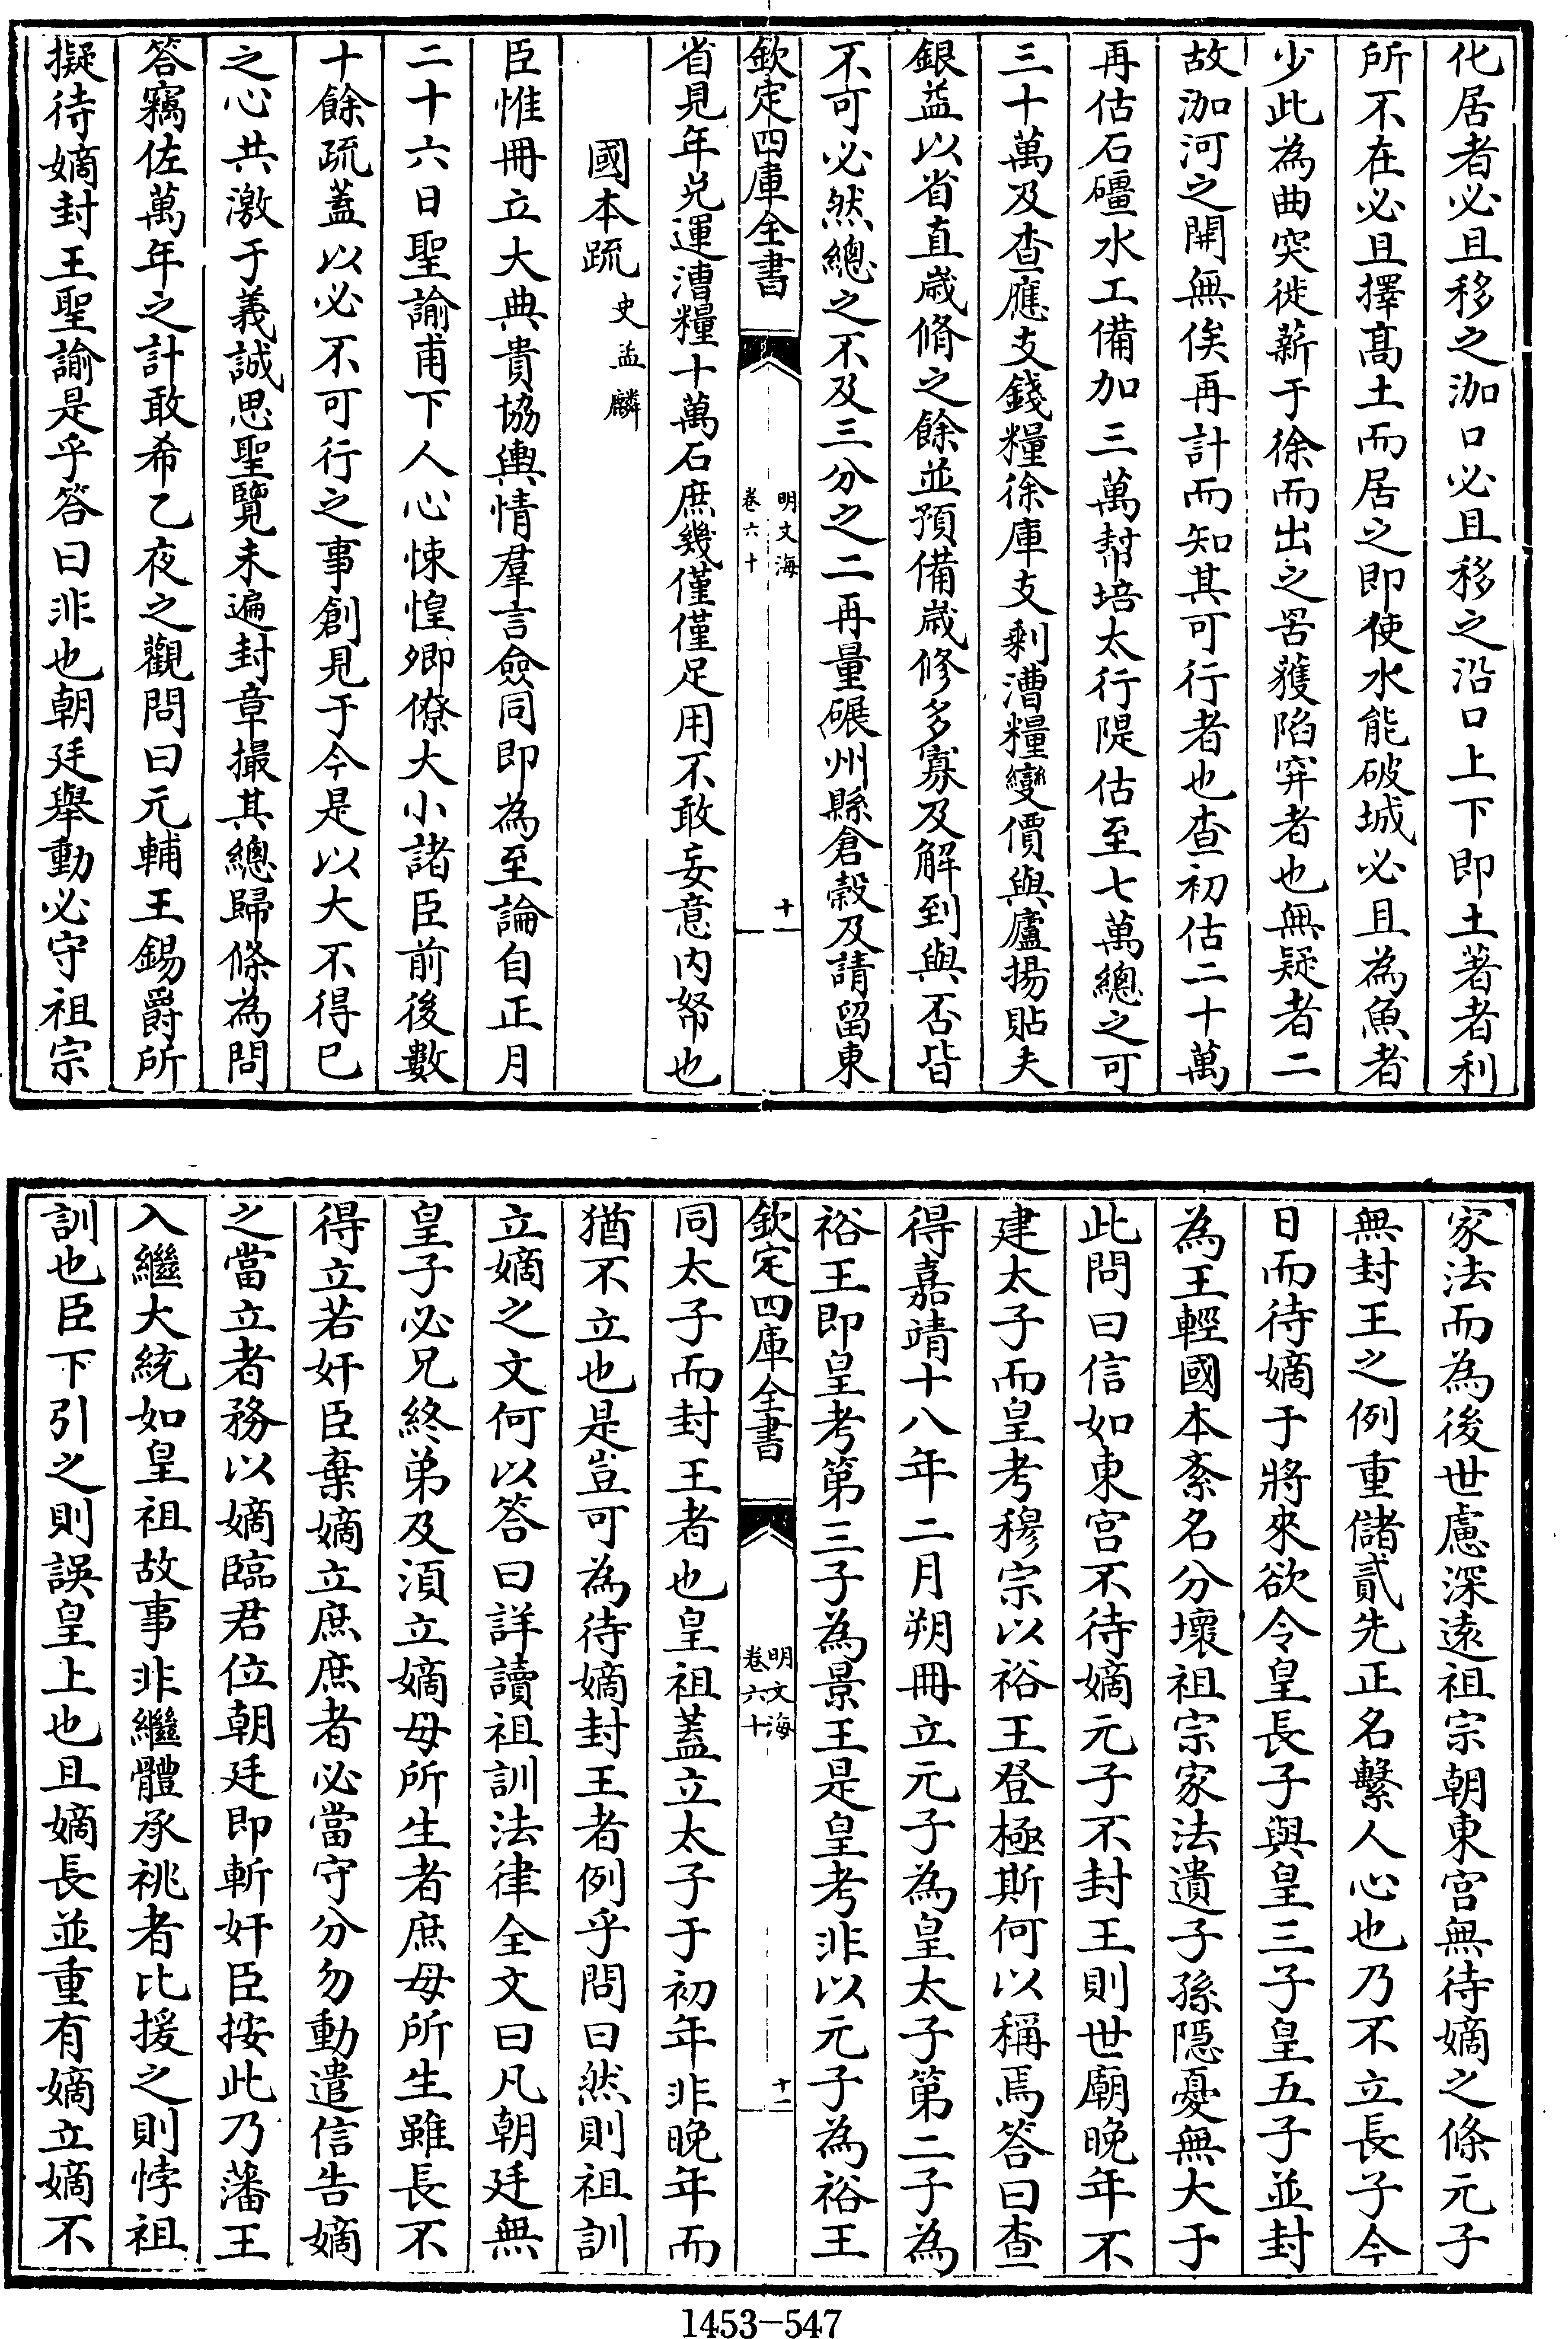 化居者必且移之泇口必且移之沿口上下即土著者利
所不在必且擇髙土而居之即使水能破城必且為魚者
少此為曲突徙薪于徐而出之罟擭陷穽者也無疑者二
故泇河之開無俟再計而知其可行者也查初估二十萬
再估石礓水工備加三萬幇培太行隄估至七萬總之可
三十萬及查應支錢糧徐庫支剩漕糧變價與廬揚貼夫
銀益以省直歲脩之餘並預備歲修多寡及解到與否皆
不可必然總之不及三分之二再量碾州縣倉穀及請留東
欽定四庫全書
明文海
卷六十
十一
省見年兌運漕糧十萬石庶幾僅僅足用不敢妄意内帑也
國本疏 史孟麟
臣惟冊立大典貴協輿情羣言僉同即為至論自正月
二十六日聖諭甫下人心悚惶卿僚大小諸臣前後數
十餘疏蓋以必不可行之事創見于今是以大不得已
之心共激于義誠思聖覽未遍封章撮其總歸條為問
答竊佐萬年之計敢希乙夜之觀問曰元輔王錫爵所
擬待嫡封王聖諭是乎答曰非也朝廷舉動必守祖宗
家法而為後世慮深逺祖宗朝東宫無待嫡之條元子
無封王之例重儲貳先正名繫人心也乃不立長子今
日而待嫡于將來欲令皇長子與皇三子皇五子並封
為王輕國本紊名分壞祖宗家法遺子孫隱憂無大于
此問曰信如東宫不待嫡元子不封王則世廟晚年不
建太子而皇考穆宗以裕王登極斯何以稱焉答曰查
得嘉靖十八年二月朔冊立元子為皇太子第二子為
裕王即皇考第三子為景王是皇考非以元子為裕王
欽定四庫全書
明文海
卷六十
十二
同太子而封王者也皇祖蓋立太子于初年非晚年而
猶不立也是豈可為待嫡封王者例乎問曰然則祖訓
立嫡之文何以答曰詳讀祖訓法律全文曰凡朝廷無
皇子必兄終弟及湏立嫡母所生者庶母所生雖長不
得立若奸臣棄嫡立庶庶者必當守分勿動遣信告嫡
之當立者務以嫡臨君位朝廷即斬奸臣按此乃藩王
入繼大統如皇祖故事非繼體承祧者比援之則悖祖
訓也臣下引之則誤皇上也且嫡長並重有嫡立嫡不
1453-547